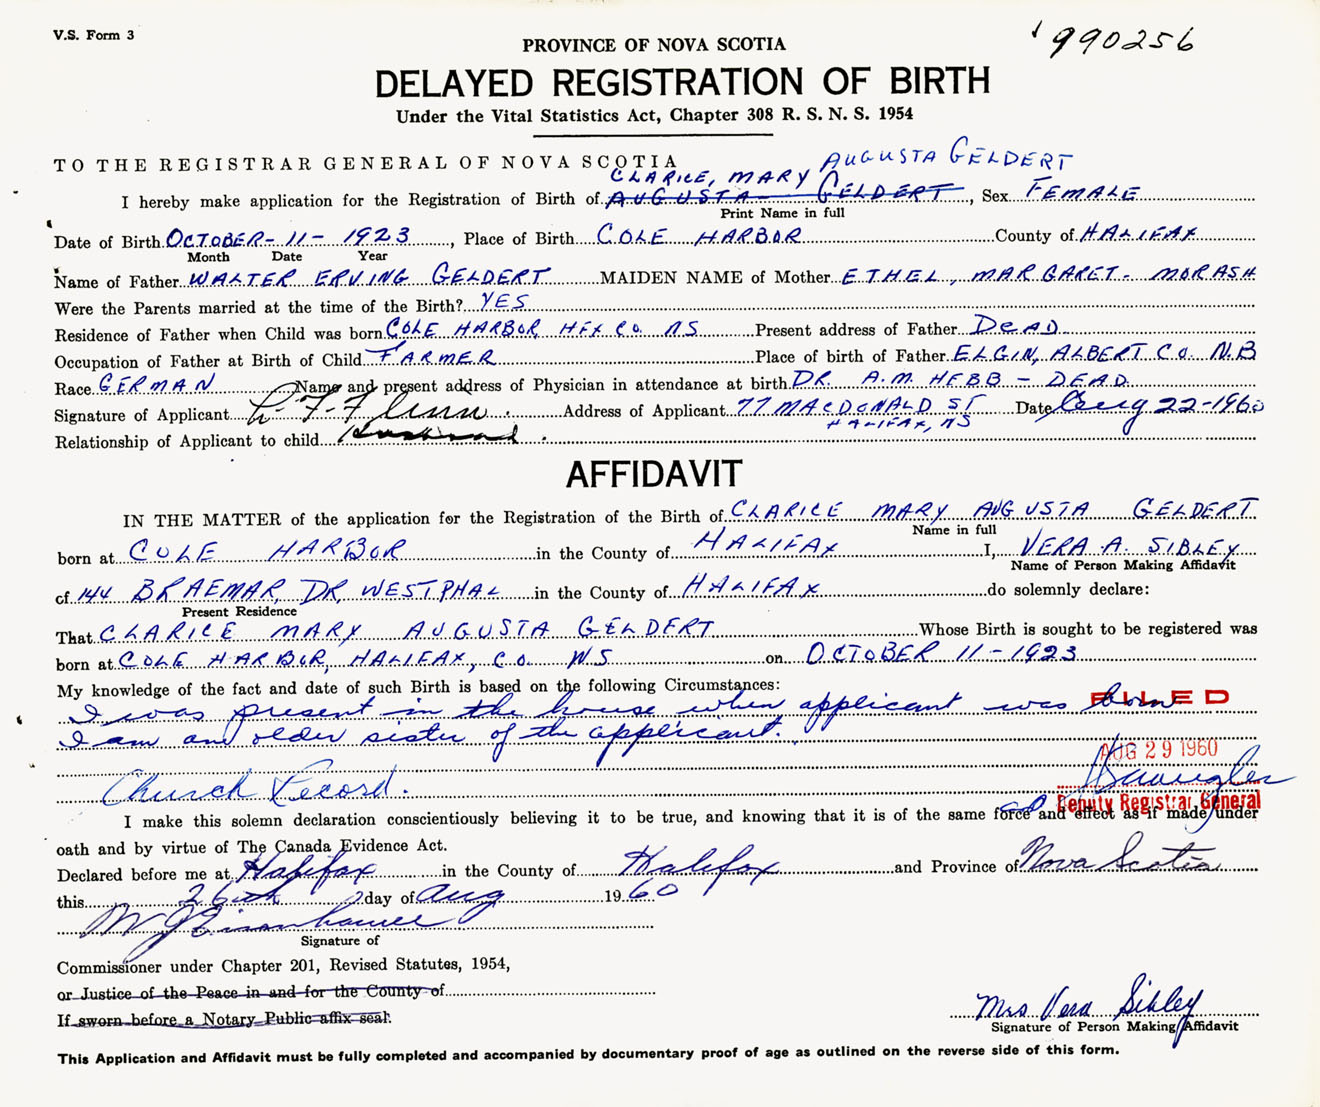 V.S. Form 3
990256
PROVINCE OF NOVA SCOTIA
DELAYED REGISTRATION OF BIRTH
Under the Vital Statistics Act, Chapter 308 R. S. N. S. 1954
TO THE REGISTRAR GENERAL OF NOVA SCOTIA
AUGUSTA GELDERT
CLARICE, MARY
I hereby make application for the Registration of Birth of AUGUSTA GELDERT, Sex FEMALE
Print Name in full
Date of Birth OCTOBER - 11 - 1923, Place of Birth COLE HARBOR County of HALIFAX
Month Date Year
Name of Father WALTER ERVING GELDERT MAIDEN NAME of Mother ETHEL, MARGARET - MORASH
Were the Parents married at the time of the Birth? YES
Residence of Father when Child was born COLE HARBOR, HFX CO. NS Present address of Father DEAD
Occupation of Father at Birth of Child FARMER Place of birth of Father ELGIN, ALBERT CO. N.B
Race GERMAN Name and present address of Physician in attendance at birth DR. A.M. HEBB - DEAD
Signature of Applicant Address of Applicant 77 MACDONALD ST Date Aug 22-1960
HALIFAX, NS
Relationship of Applicant to child Husband
AFFIDAVIT
IN THE MATTER of the application for the Registration of the Birth of CLARICE MARY AUGUSTA GELDERT
Name in full
born at COLE HARBOR in the County of HALIFAX I, VERA A. SIBLEY
Name of Person Making Affidavit
of 144 BRAEMAR, DR, WESTPHAL in the County of HALIFAX do solemnly declare:
Present Residence
That CLARICE MARY AUGUSTA GELDERT Whose Birth is sought to be registered was
born at COLE HARBOR, HALIFAX, CO. NS on OCTOBER 11-1923
My knowledge of the fact and date of such Birth is based on the following Circumstances:
I was present in the house when applicant was born
FILED
I am an older sister of the applicant.
AUG 29 1960
Church Record.
Deputy Registrar General
I make this solemn declaration conscientiously believing it to be true, and knowing that it is of the same force and effect as if made under
oath and by virtue of The Canada Evidence Act.
Declared before me at Halifax in the County of Halifax and Province of Nova Scotia
this 26th day of Aug 1960
Signature of
Commissioner under Chapter 201, Revised Statutes, 1954,
or Justice of the Peace in and for the County of
If sworn before a Notary Public affix seal.
Mrs Vera Sibley
Signature of Person Making Affidavit
This Application and Affidavit must be fully completed and accompanied by documentary proof of age as outlined on the reverse side of this form.